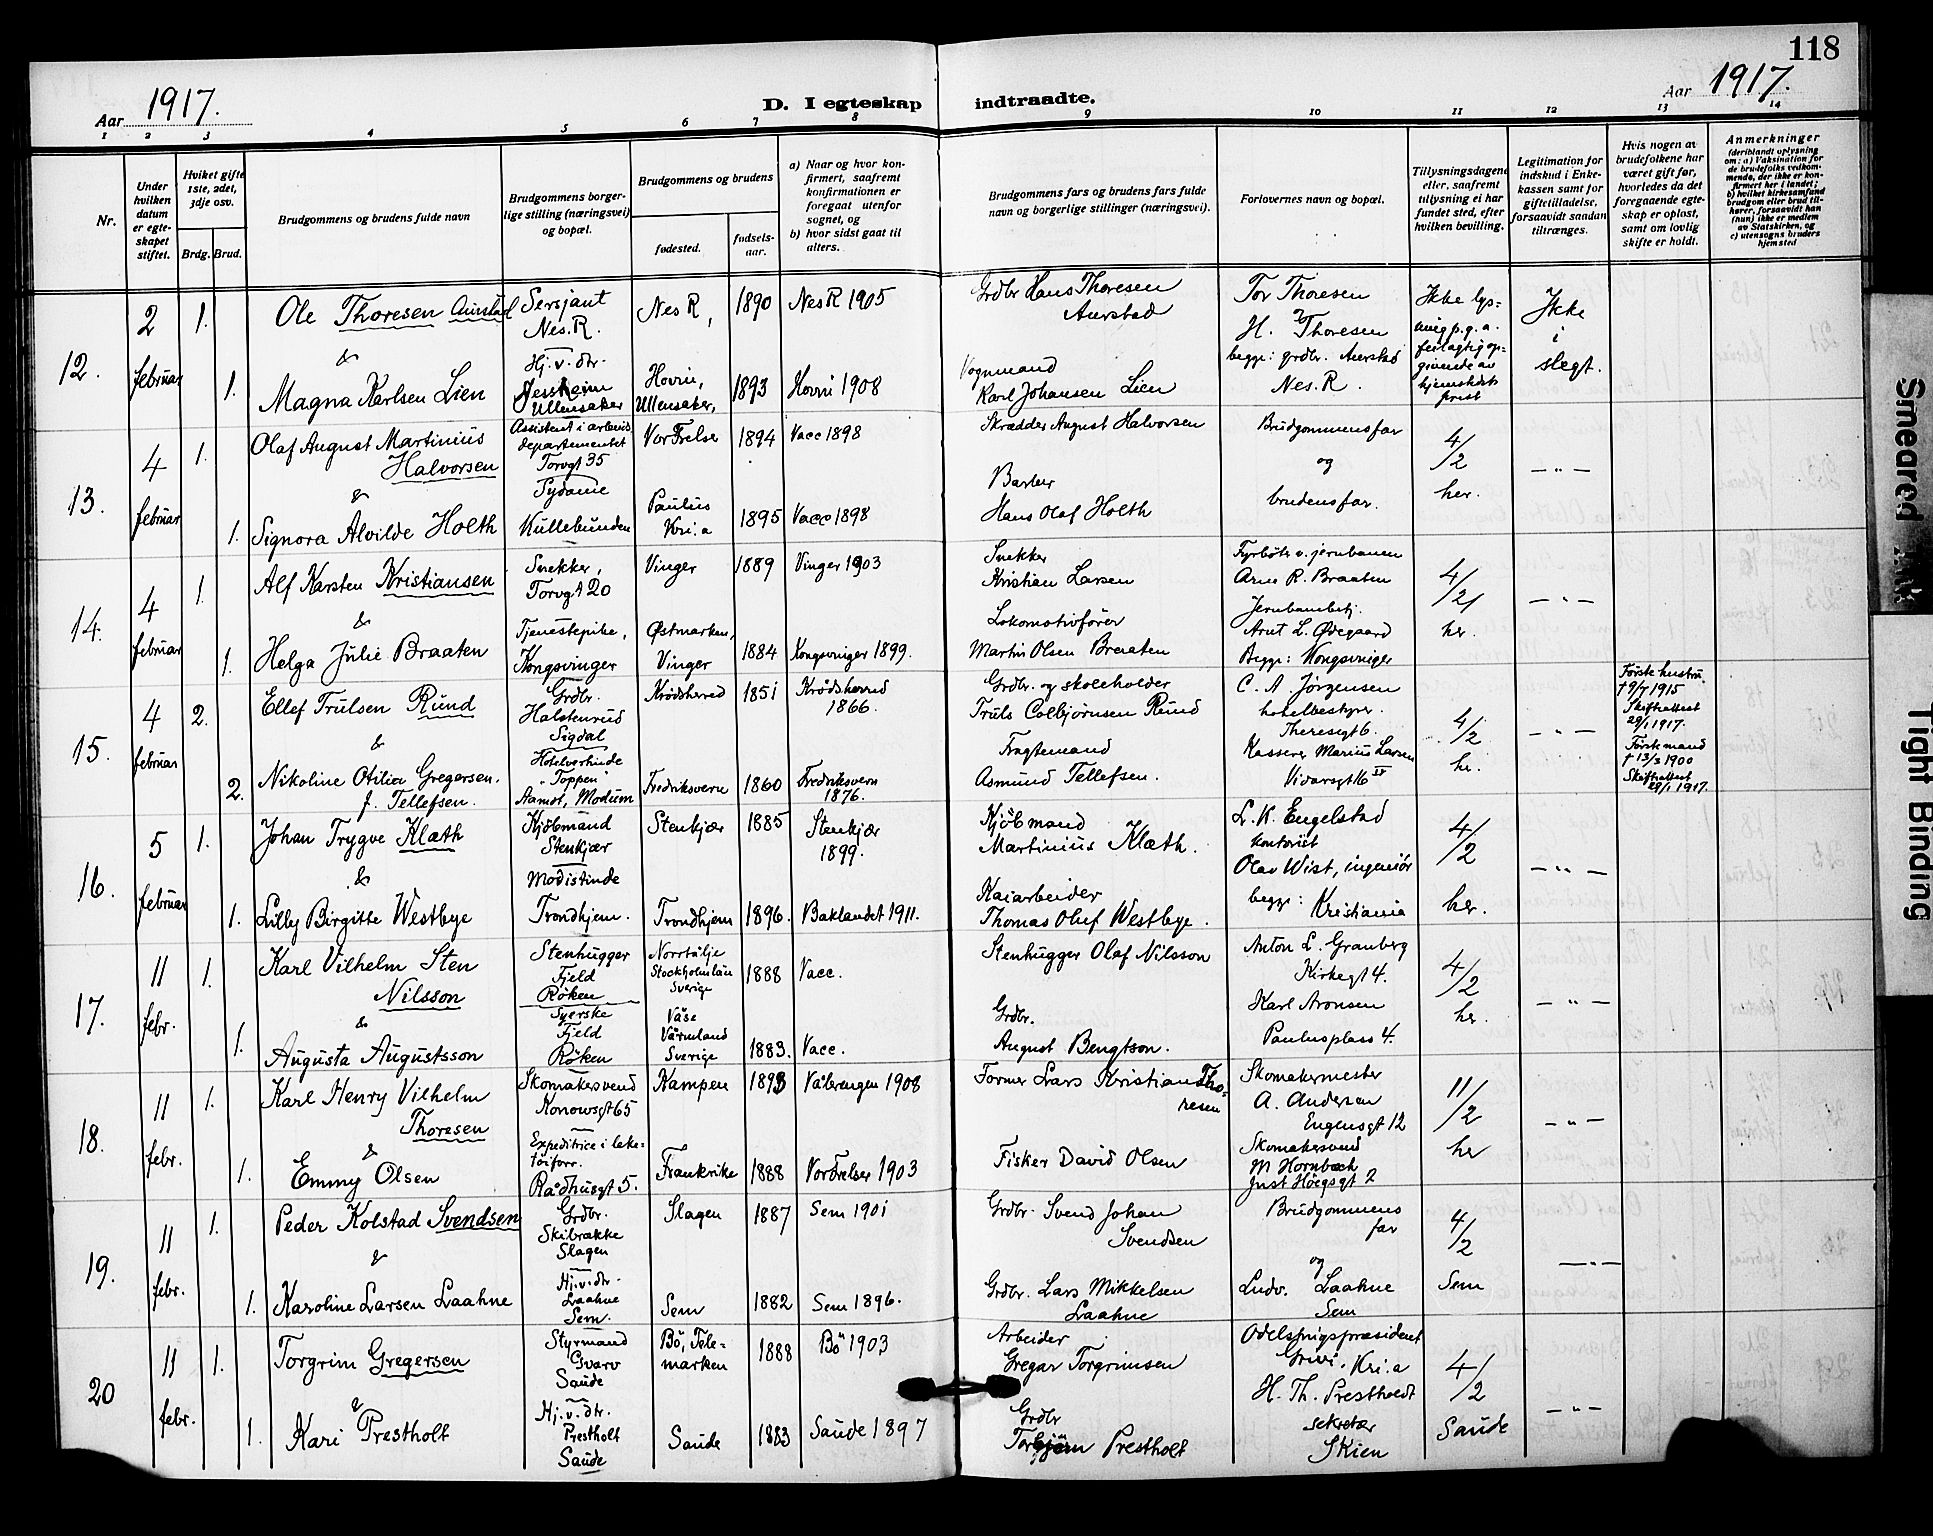 118
Aar 1917.
D. I egteskap indtraadte.
Aar 1917.
1 2 3 4 5 6 7 8 9 10 11 12 13 14
Nr.
Under hvilken datum er egteskapet stiftet.
Hviket gifte 1ste, 2det, 3dje osv.
Brdg. Brud.
Brudgommens og brudens fulde navn
Brudgommens borgerlige stilling (næringsvei) og bopæl.
Brudgommens og brudens
fødested.
fødselsaar.
a) Naar og hvor konfirmert, saafremt konfirmationen er foregaat utenfor sognet, og
b) hvor sidst gaat til alters.
Brudgommens fars og brudens fars fulde navn og borgerlige stillinger (næringsvei).
Forlovernes navn og bopæl.
Tillysningsdagene eller, saafremt tillysning ei har fundet sted, efter hvilken bevilling.
Legitimation for indskud i Enkekassen samt for giftetilladelse, forsaavidt saadan tiltrænges.
Hvis nogen av brudefolkene har været gift før, hvorledes da det foregaaende egteskap er opløst, samt om lovlig skifte er holdt.
Anmerkninger
(deriblandt oplysning om: a) Vaksination for de brudefolks vedkommende, der ikke er konfirmert her i landet; b) hvilket kirkesamfund brudgom eller brud tilhører, forsaavidt han (hun) ikke er medlem av Statskirken, og c) utensogns bruders hjemsted
12. 2 februar
1. Ole Thoresen Aurstad
Sersjant
Nes. R.
Nes R, 1890 Nes R 1905
Grdbr Hans Thoresen
Aurstad
&
1. Magna Karlsen Lien
Hj. v. dtr.
Jessheim
Ullensaker
Hovin,
Ullensaker, 1893 Hovin 1908
Vognmand
Karl Johansen Lien
Tor Thoresen
H. Thoresen
begge: grdbr. Aurstad
Nes. R.
Ikke lys-
ning p.g.a.
feilagtig op-
givende av
hjemstedets
prest
Ikke
i
slegt.
13. 4 februar
1. Olaf August Martinius
Halvorsen
Assistent i arbeids
departementet
Torvgt 35
Vor Frelse 1894 Vacc 1898
Skrædder August Halvorsen
&
1. Signora Alvilde Holth
Sydame
Kullebunden
Paulus
Kri.a 1895 Vacc 1898
Barber
Hans Olaf Holth
Brudgommens far
og
brudens far.
4/2
her.
— „ —
14. 4 februar
1. Alf Karsten Kristiansen
Snekker,
Torvgt 20
Vinger 1889 Vinger 1903
Snekker
Kristian Larsen
&
1. Helga Julie Braaten
Tjenestepike,
Kongsvinger
Østmarken,
Vinger 1884 Kongsvinger 1899.
Lokomotivfører
Martin Olsen Braaten
Fyrbøter v. jernbanen
Arne R. Braaten
Jernbanebetj.
Arnt L. Ødegaard
Begge: Kongsvinger
4/21
her.
— „ —
15. 4 februar
2. Ellef Trulsen Rund
Grdbr.
Halstenrud
Sigdal
Krødsherred 1851 Krødsherred
1866.
Grdbr. og skoleholder
Truls Colbjørnsen Rund
&
2. Nikoline Otilia Gregersen.
f. Tellefsen.
Hotelvertinde
"Toppen"
Aamot, Modum
Fredriksvern 1860 Fredriksvern
1876.
Fragtemand
Asmund Tellefsen.
C. A. Jørgensen
hotelbestyrer.
Theresegt 6.
Kasserer Marius Larsen
Vidarsgt 16 IV
4/2
her.
— „ —
Første hustru
† 9/7 1915
Skifteattest
29/1 1917.
Første mand
† 13/3 1900
Skifteattest
29/1 1917.
16. 5 februar
1. Johan Trygve Klæth
Kjøbmand
Stenkjær
Stenkjær 1885 Stenkjær
1899.
Kjøbmand
Martinius Klæth.
&
1. Lilly Birgitte Westbye
Modistinde
Trondhjem.
Trondhjem 1896. Baklandet 1911.
Kaiarbeider
Thomas Oluf Westbye.
L. K. Engelstad
kontorist
Olav Wist, ingeniør
begge: Kristiania
4/2
her.
— „ —
17. 11 febr.
1. Karl Vilhelm Sten
Nilsson
Stenhugger
Fjeld
Røken
Norrtälje
Stockholmslän
Sverige 1888 Vacc.
Stenhugger Olaf Nilsson
&
1. Augusta Augustsson
Syerske
Fjeld
Røken
Våse
Värmland
Sverige 1883. Vacc.
Grdbr.
August Bengtson.
Anton L. Granberg
Kirkegt 4.
Karl Aronsen
Paulusplass 4.
4/2
her.
— „ —
18. 11 febr.
1. Karl Henry Vilhelm
Thoresen
Skomakersvend
Konowsgt 65
Kampen 1893 Vålerengen 1908
Former Lars Kristian Tho-
resen
&
1. Emmy Olsen
Expeditrice i leke-
tøiforr.
Rådhusgt 5.
Frankrike 1888 Vor Frelser 1903
Fisker David Olsen
Skomakermester
A. Andersen
Eugensgt 12
Skomakersvend
M Hornbæk
Just Høegsgt 2
11/2
her
— „ —
19. 11 febr.
1. Peder Kolstad Svendsen
Grdbr.
Skibrække
Slagen
Slagen 1887 Sem 1901
Grdbr. Svend Johan
Svendsen
&
1. Karoline Larsen Laahne
Hj. v. dtr.
Laahne
Sem.
Sem 1882 Sem 1896.
Grdbr. Lars Mikkelsen
Laahne
Brudgommens
far
og
Ludv. Laahne
Sem
4/2
Sem
— „ —
20 11 febr.
1. Torgrim Gregersen
Styrmand
Gvarv
Saude
Bö, Tele-
marken 1888 Bö 1903
Arbeider
Gregar Torgrimsen
&
1. Kari Prestholt
Hj. v. dtr.
Prestholt
Saude
Saude 1883 Saude 1897
Grdbr
Torbjørn Prestholt
Odelstingspræsident
Grivi, Kri.a
H. Th. Prestholdt
sekretær
Skien
4/2
Saude
— „ —
Smeared Ink
Tight Binding